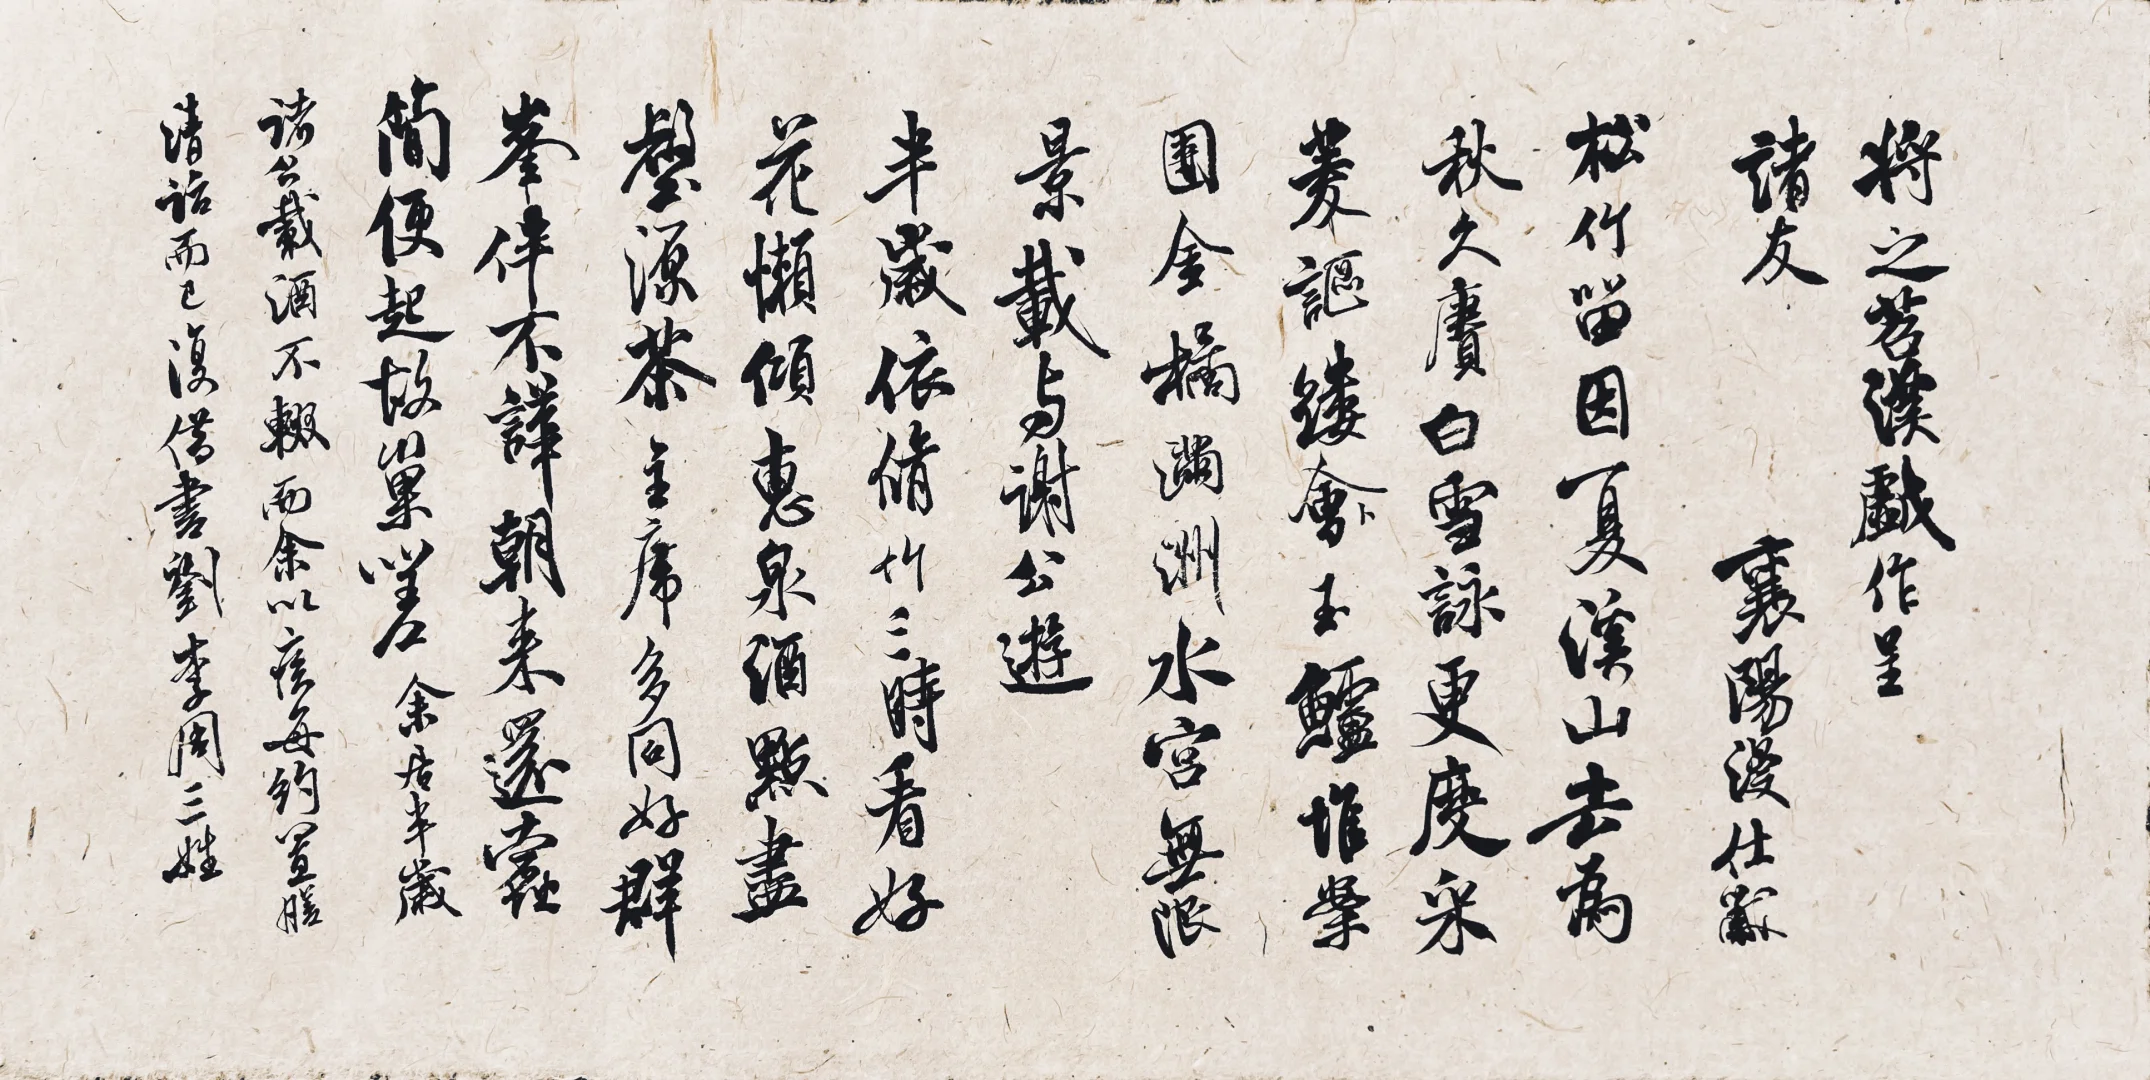 將之苕溪戲作呈
諸友 襄陽漫仕黻
松竹留因夏溪山去為
秋久賡白雪詠更度采
菱謳縷會卜玉鱸堆案
團金橘滿洲水宮無限
景載与謝公遊
半歲依脩竹三時看好
花懶傾惠泉酒點盡
壑源茶主席多同好群
峯伴不譁朝来還蠹
簡便起故巢嗟 余居半歲
諸公載酒不輟而余以疾每約置膳
清話而已復借書劉李周三姓